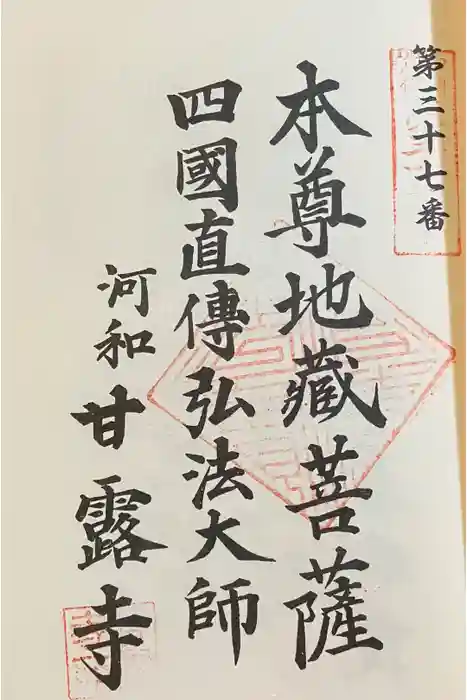 第三十七番
本尊地藏菩薩
四國直傳弘法大師
河和
甘露寺